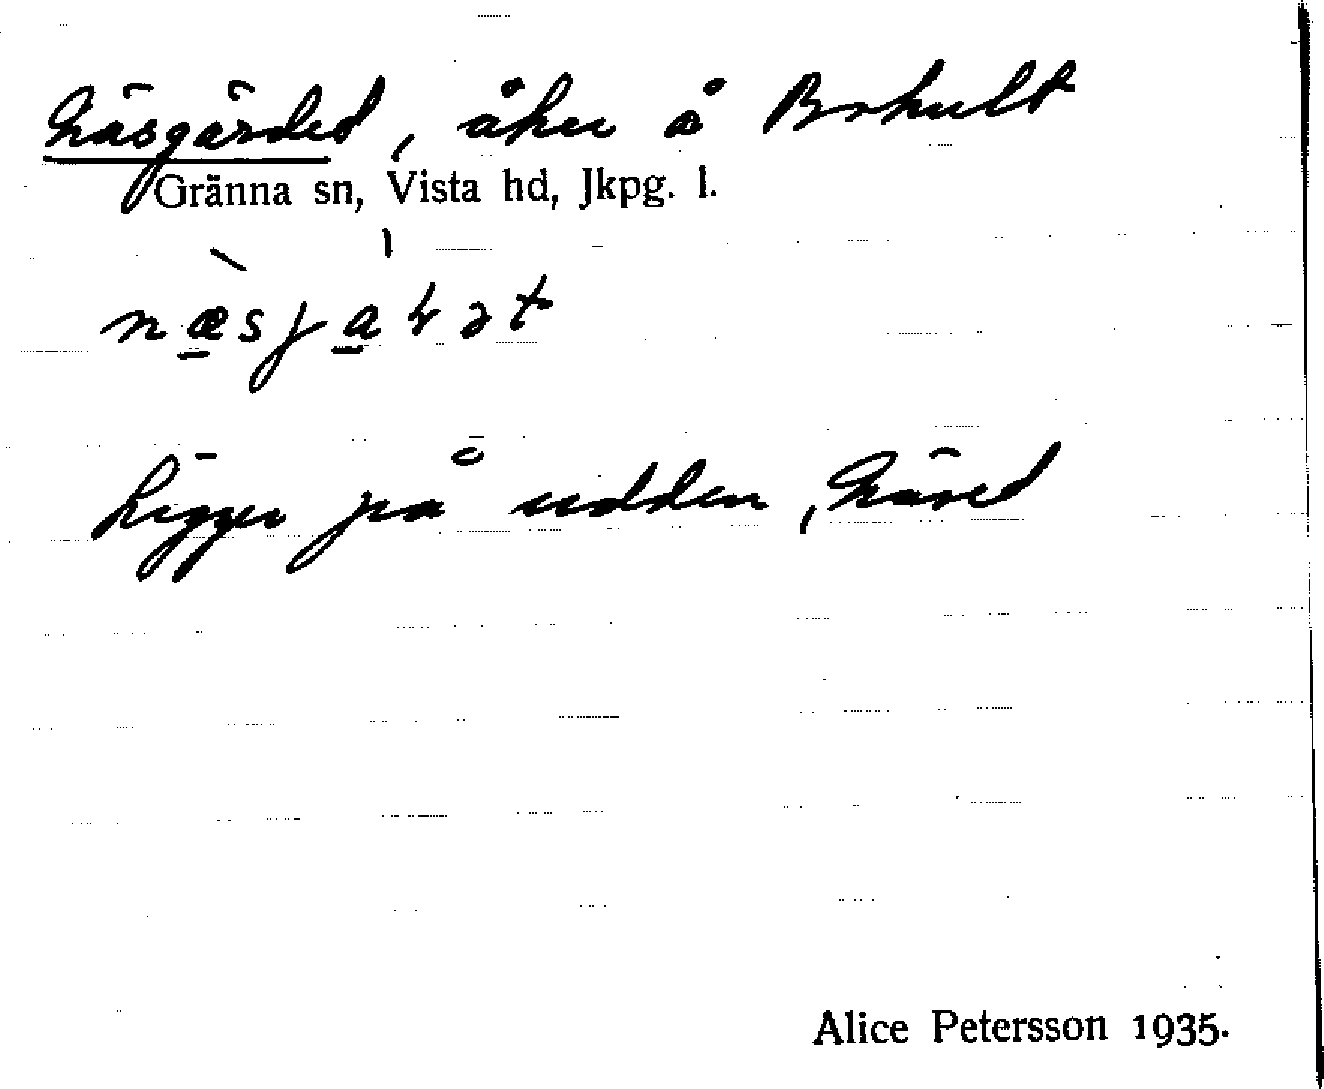 Näsgärdet, åker å Bohult
Gränna sn, Vista hd, Jkpg. l.
Ligger på udden, Näset
Alice Petersson 1935.